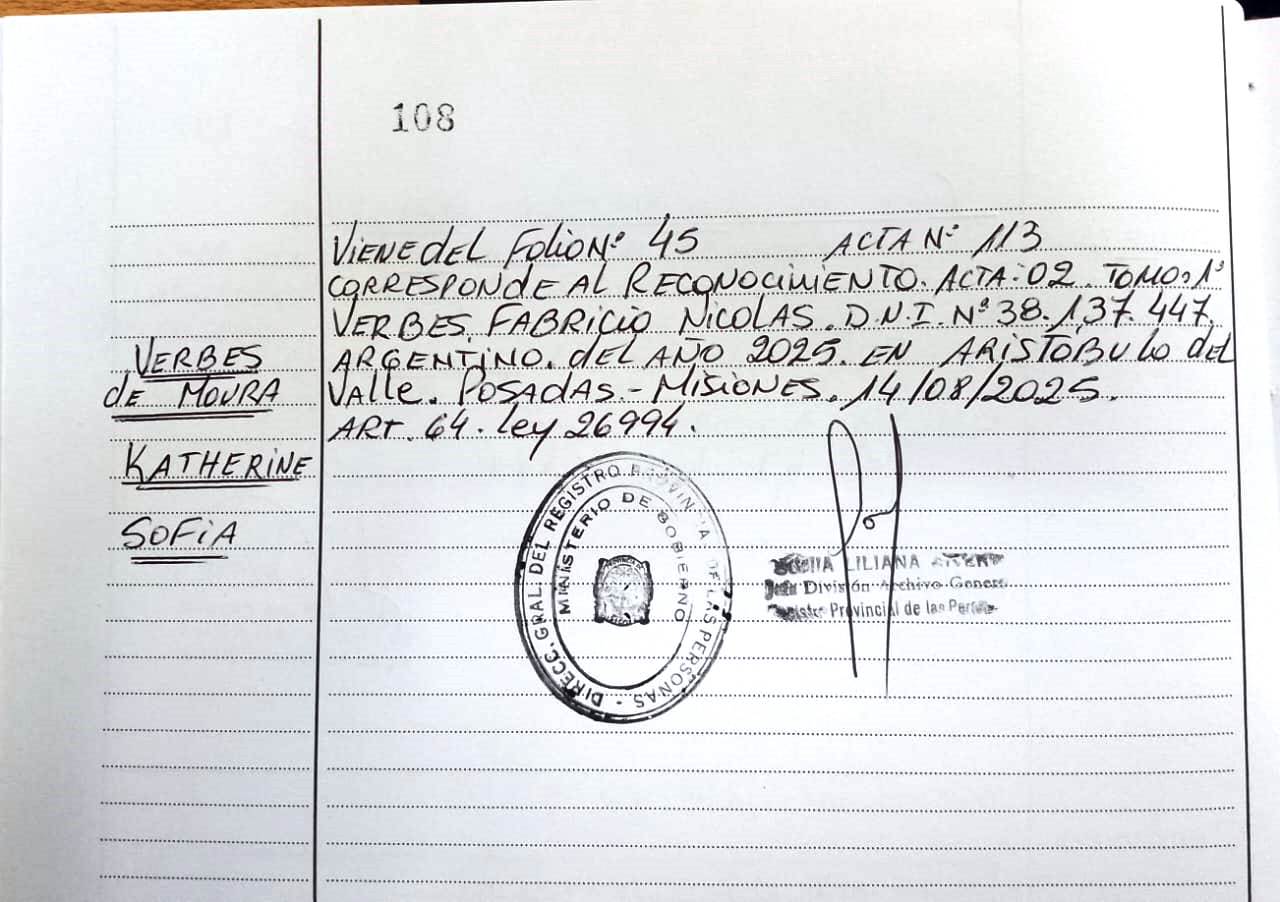 108
VIENE dEL FOLIO Nº 45 ACTA Nº 113
CORRESPONDE AL RECONOCIMIENTO. ACTA: 02. TOMO: 1º
VERBES. FABRICIO NICOLAS. D.N.I. Nº 38.137.447.
ARGENTINO. dEL AÑO 2025. EN ARISTÓBULO dEL
VALLE. POSADAS - MISIONES. 14/08/2025.
ART. 64. LEY 26994.
VERBES
dE MOURA
KATHERINE
SOFIA
DIRECC. GRAL. DEL REGISTRO PROVINCIAL DE LAS PERSONAS -
MINISTERIO DE GOBIERNO
LILIANA
División Archivo General
Provincial de las